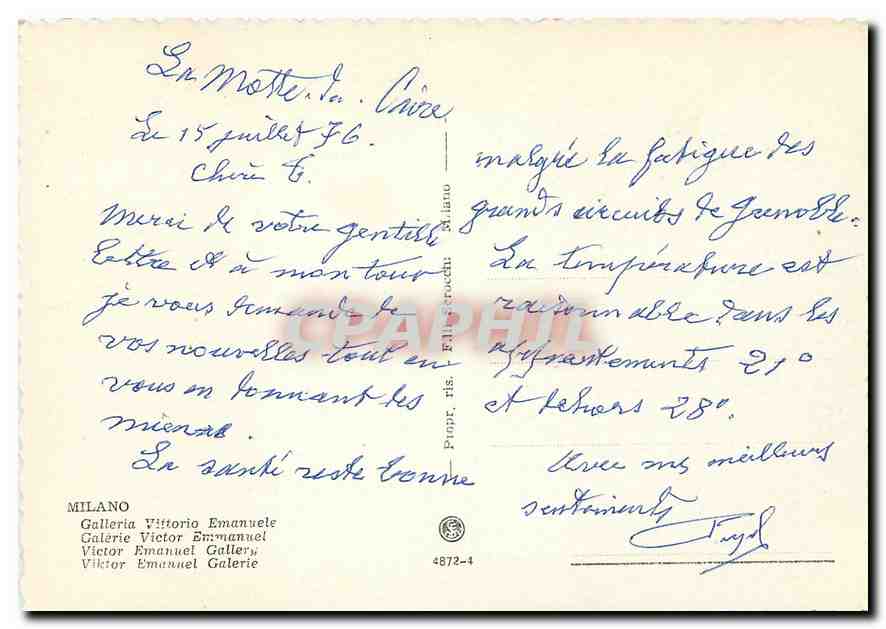 La Motte-du-Caire
Le 15 juillet 76.
Chère T.
Merci de votre gentille
lettre et à mon tour
je vous demande de
vos nouvelles tout en
vous en donnant des
miennes.
La santé reste bonne
malgré la fatigue des
grands circuits de Grenoble.
La température est
raisonnable dans les
appartements 21°
et dehors 28°.
Avec mes meilleurs
sentiments
Propr. ris. F.lli Serocchi Milano
CPAPHIL
MILANO
Galleria Vittorio Emanuele
Galérie Victor Emmanuel
Victor Emanuel Gallery
Viktor Emanuel Galerie
4872-4